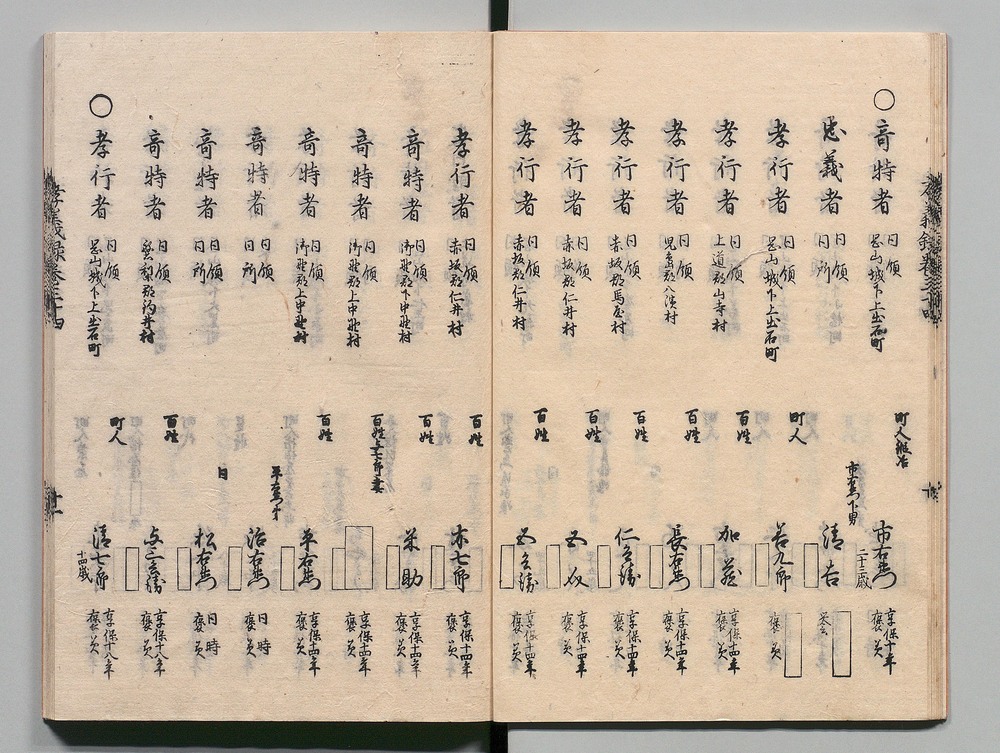 ○奇特者 同領 岡山城下上出石町 町人 鍛冶 市右衛門 二十三歳 享保十四年 褒美
忠義者 同領 同所 市右衛門下男 清吉
孝行者 同領 岡山城下上出石町 町人 若九郎 褒美
孝行者 同領 上道郡山寺村 百姓 加蔵 享保十四年 褒美
孝行者 同領 児島郡八浜村 百姓 長右衛門 享保十四年 褒美
孝行者 同領 赤坂郡馬屋村 百姓 仁兵衛 享保十四年 褒美
孝行者 同領 赤坂郡仁井村 百姓 享保十四年 褒美
孝行者 同領 赤坂郡仁井村 百姓 享保十四年 褒美
孝行者 同領 赤坂郡仁井村 百姓 木七郎 享保十四年 褒美
奇特者 同領 御野郡下中野村 百姓 米助 享保十四年 褒美
奇特者 同領 御野郡上中野村 百姓 七郎妻 享保十四年 褒美
奇特者 同領 御野郡上中野村 百姓 平右衛門 享保十四年 褒美
奇特者 同領 同所 平右衛門弟 治右衛門 同時 褒美
奇特者 同領 同所 同 松右衛門 同時 褒美
奇特者 同領 村 百姓 与三兵衛 享保十八年 褒美
○孝行者 同領 岡山城下上出石町 町人 清七郎 十四歳 享保十八年 褒美
孝義録巻三十四